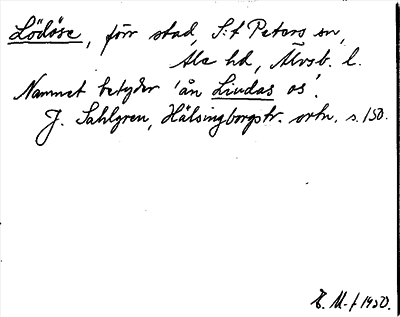 Lödöse, förr stad, S:t Peters sn,
Ale hd, Älvsb. l.
Namnet betyder 'ån Liudas os'.
J. Sahlgren, Hälsingborgstr. ortn. s. 150.
1950.